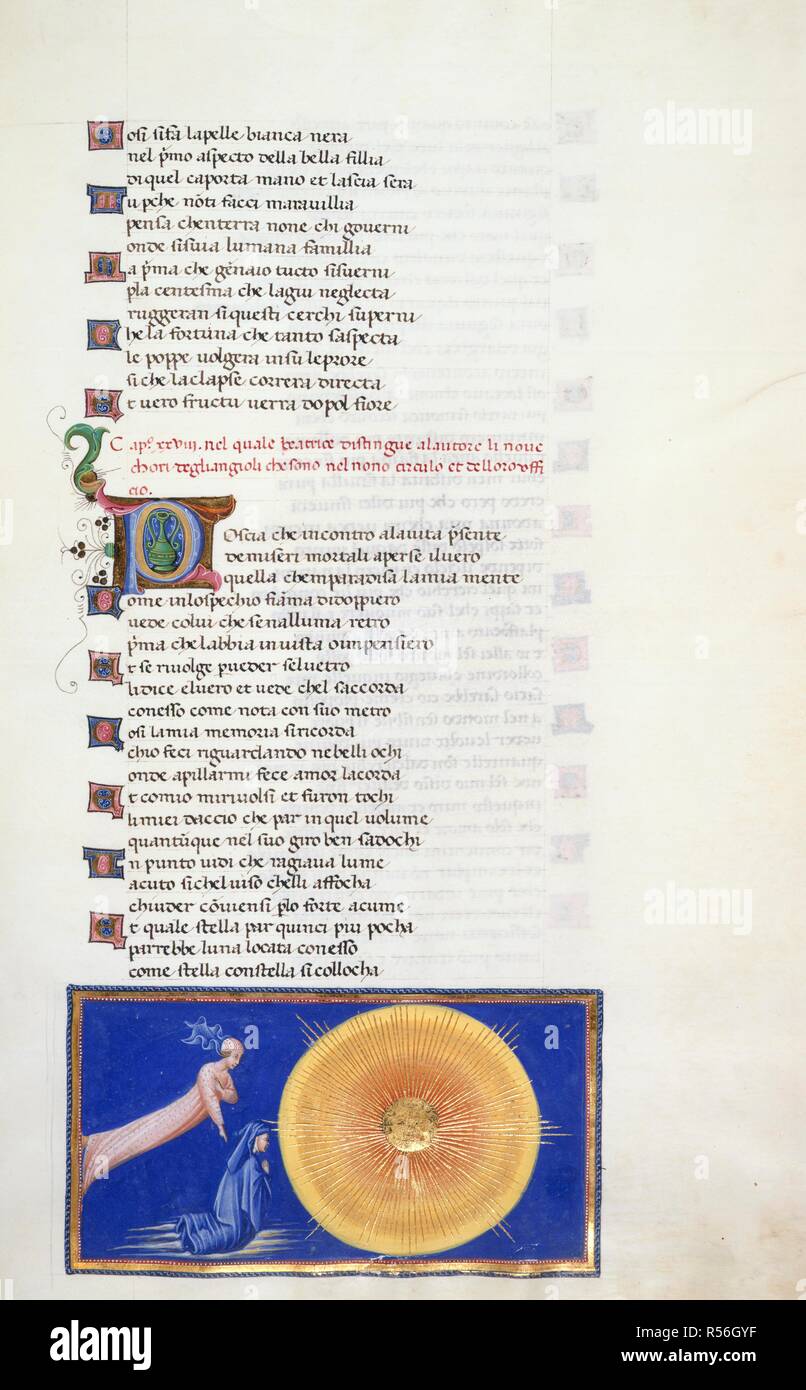 Cosi si fa la pelle bianca nera
nel pͫmo aspecto della bella fillia
di quel caporta mano et lascia sera
Tu pche nōti facci maravillia
pensa chenterra none chi governi
onde sisuia lumana familia
Ma pͫma che gēnaio tucto sisuerni
pla centesma che lagiu neglecta
ruggeran si questi cerchi superni
Che la fortuna che tanto saspecta
le poppe volgera in su le prore
si che laclasse correra directa
Et vero fructu verra dopol fiore
Cap͠. xxviii. nel quale beatrice distingue alautore li nove
chori degliangioli che sono nel nono circulo et delloro uffi
cio.
Poscia che incontro alavita pͫsente
demiseri mortali aperse ilvero
quella chemparadisa lamia mente
Come inlospechio fiāma didoppiero
vede colui che senalluma retro
pͫma che labbia in vista o in pensiero
Et se rivolge p veder selvetro
lidice elvero et vede chel saccorda
conesso come nota con suo metro
Cosi lamia memoria siricorda
chio feci riguardando nebelli ochi
onde apillarmi fece amor lacorda
Et comio mirivolsi et furon tochi
limiei daccio che par in quel volume
quantūque nel suo giro ben sadochi
Un punto vidi che ragiava lume
acuto sichel viso chelli affocha
chiuder cōviensi plo forte acume
Et quale stella par quinci piu pocha
parrebbe luna locata conesso
come stella constella si collocha
alamy
alamy
alamy
Image ID: R56GYF
www.alamy.com